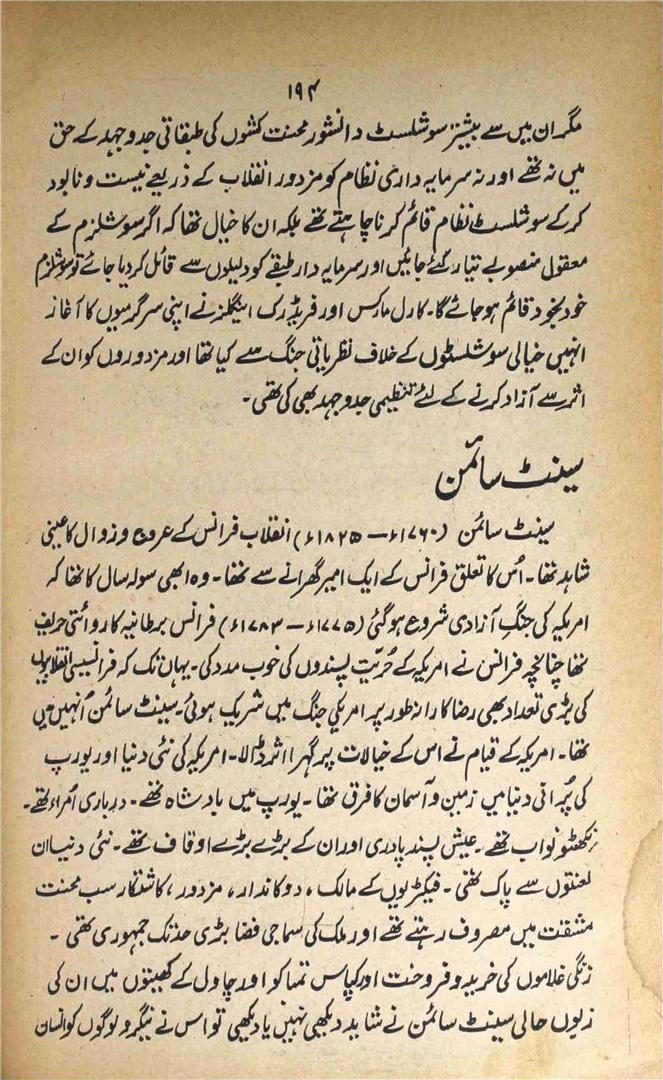 ۱۹۴
مگر ان میں سے بیشتر سوشلسٹ دانشور محنت کشوں کی طبقاتی جدوجہد کے حق
میں نہ تھے اور نہ سرمایہ داری نظام کو مزدور انقلاب کے ذریعے نیست و نابود
کرکے سوشلسٹ نظام قائم کرنا چاہتے تھے بلکہ ان کا خیال تھا کہ اگر سوشلزم کے
معقول منصوبے تیار کئے جائیں اور سرمایہ دار طبقے کو دلیلوں سے قائل کردیا جائے تو سوشلزم
خود بخود قائم ہوجائے گا۔ کارل مارکس اور فریڈرک اینگلز نے اپنی سرگرمیوں کا آغاز
انہیں خیالی سوشلسٹوں کے خلاف نظریاتی جنگ سے کیا تھا اور مزدوروں کو ان کے
اثر سے آزاد کرنے کے لئے تنظیمی جدوجہد بھی کی تھی۔
سینٹ سائمن
سینٹ سائمن (۱۷۶۰ء – ۱۸۲۵ء) انقلاب فرانس کے عروج و زوال کا عینی
شاہد تھا۔ اُس کا تعلق فرانس کے ایک امیر گھرانے سے تھا۔ وہ ابھی سولہ سال کا تھا کہ
امریکہ کی جنگِ آزادی شروع ہوگئی (۱۷۷۵ء – ۱۷۸۳ء) فرانس برطانیہ کا روائتی حریف
تھا چنانچہ فرانس نے امریکہ کے حُریّت پسندوں کی خوب مدد کی۔ یہاں تک کہ فرانسیسی انقلابیوں
کی بڑی تعداد بھی رضاکارانہ طور پر امریکی جنگ میں شریک ہوئی۔ سینٹ سائمن اُنہیں میں
تھا۔ امریکہ کے قیام نے اس کے خیالات پر گہرا اثر ڈالا۔ امریکہ کی نئی دنیا اور یورپ
کی پُرانی دنیا میں زمین و آسمان کا فرق تھا۔ یورپ میں بادشاہ تھے۔ درباری اُمراء تھے۔
نکھٹو نواب تھے۔ عیش پسند پادری اور ان کے بڑے بڑے اوقاف تھے۔ نئی دنیا ان
لعنتوں سے پاک تھی۔ فیکڑیوں کے مالک، دوکاندار، مزدور، کاشتکار سب محنت
مشقت میں مصروف رہتے تھے اور ملک کی سماجی فضا بڑی حد تک جمہوری تھی۔
زنگی غلاموں کی خرید و فروخت اور کپاس تمباکو اور چاول کے کھیتوں میں ان کی
زبوں حالی سینٹ سائمن نے شاید دیکھی نہیں یا دیکھی تو اس نے نیگرو لوگوں کو انسان